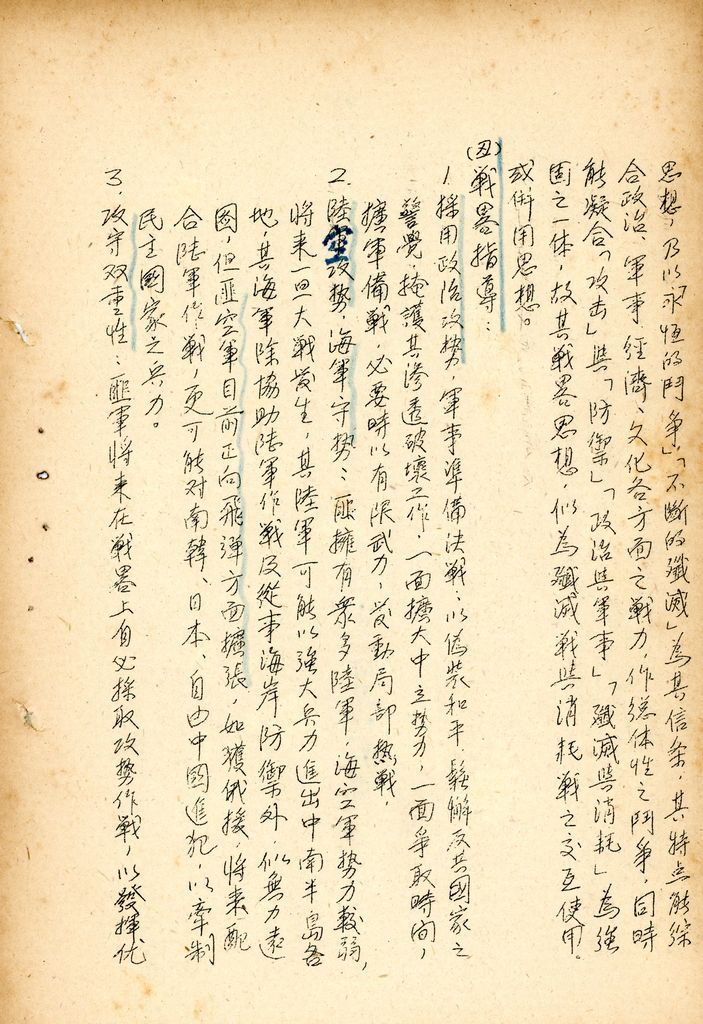 思想，乃以「永恆的鬥爭」「不斷的殲滅」為其信条，其特点能綜
合政治、軍事、經濟、文化各方面之戰力，作總体性之鬥爭，同時
能凝合「攻击」與「防禦」「政治與軍事」「殲滅與消耗」為強
固之一体，故其戰畧思想，似為殲滅戰與消耗戰之交互使用，
或併用思想。
(丑)戰畧指導：
1.採用政治攻勢，軍事準備決戰：以偽裝和平，鬆懈反共國家之
警覺，掩護其滲透破壞工作，一面擴大中立勢力，一面爭取時间，
擴軍備戰，必要時以有限武力，發動局部熱戰，
2.陸空攻勢，海軍守勢：匪擁有眾多陸軍，海空軍勢力較弱，
將来一旦大戰發生，其陸軍可能以強大兵力進出中南半島各
地，其海軍除協助陸軍作戰及從事海岸防禦外，似無力遠
圖，但匪空軍目前正向飛彈方面擴張，如獲俄援，將来配
合陸軍作戰，更可能对南韓、日本、自由中國進犯，以牽制
民主國家之兵力。
3.攻守双重性：匪軍將来在戰畧上自必採取攻勢作戰，以發揮优